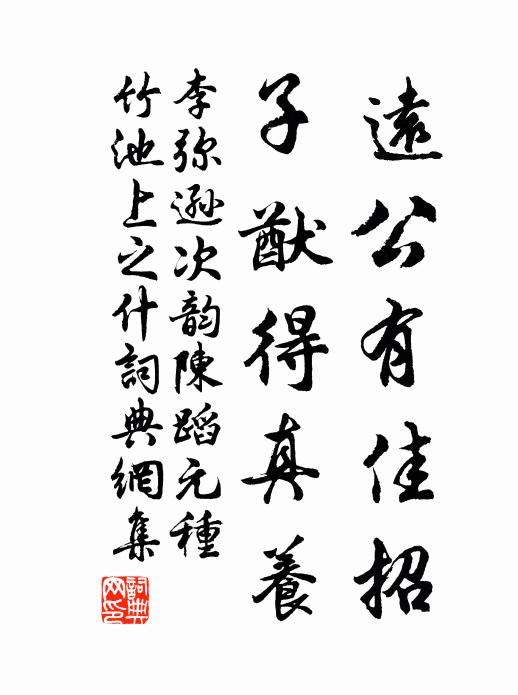 遠公有佳招
子猷得真養
李弥遜次韵陳蹈元種
竹池上之什詞典網集
詞典网印